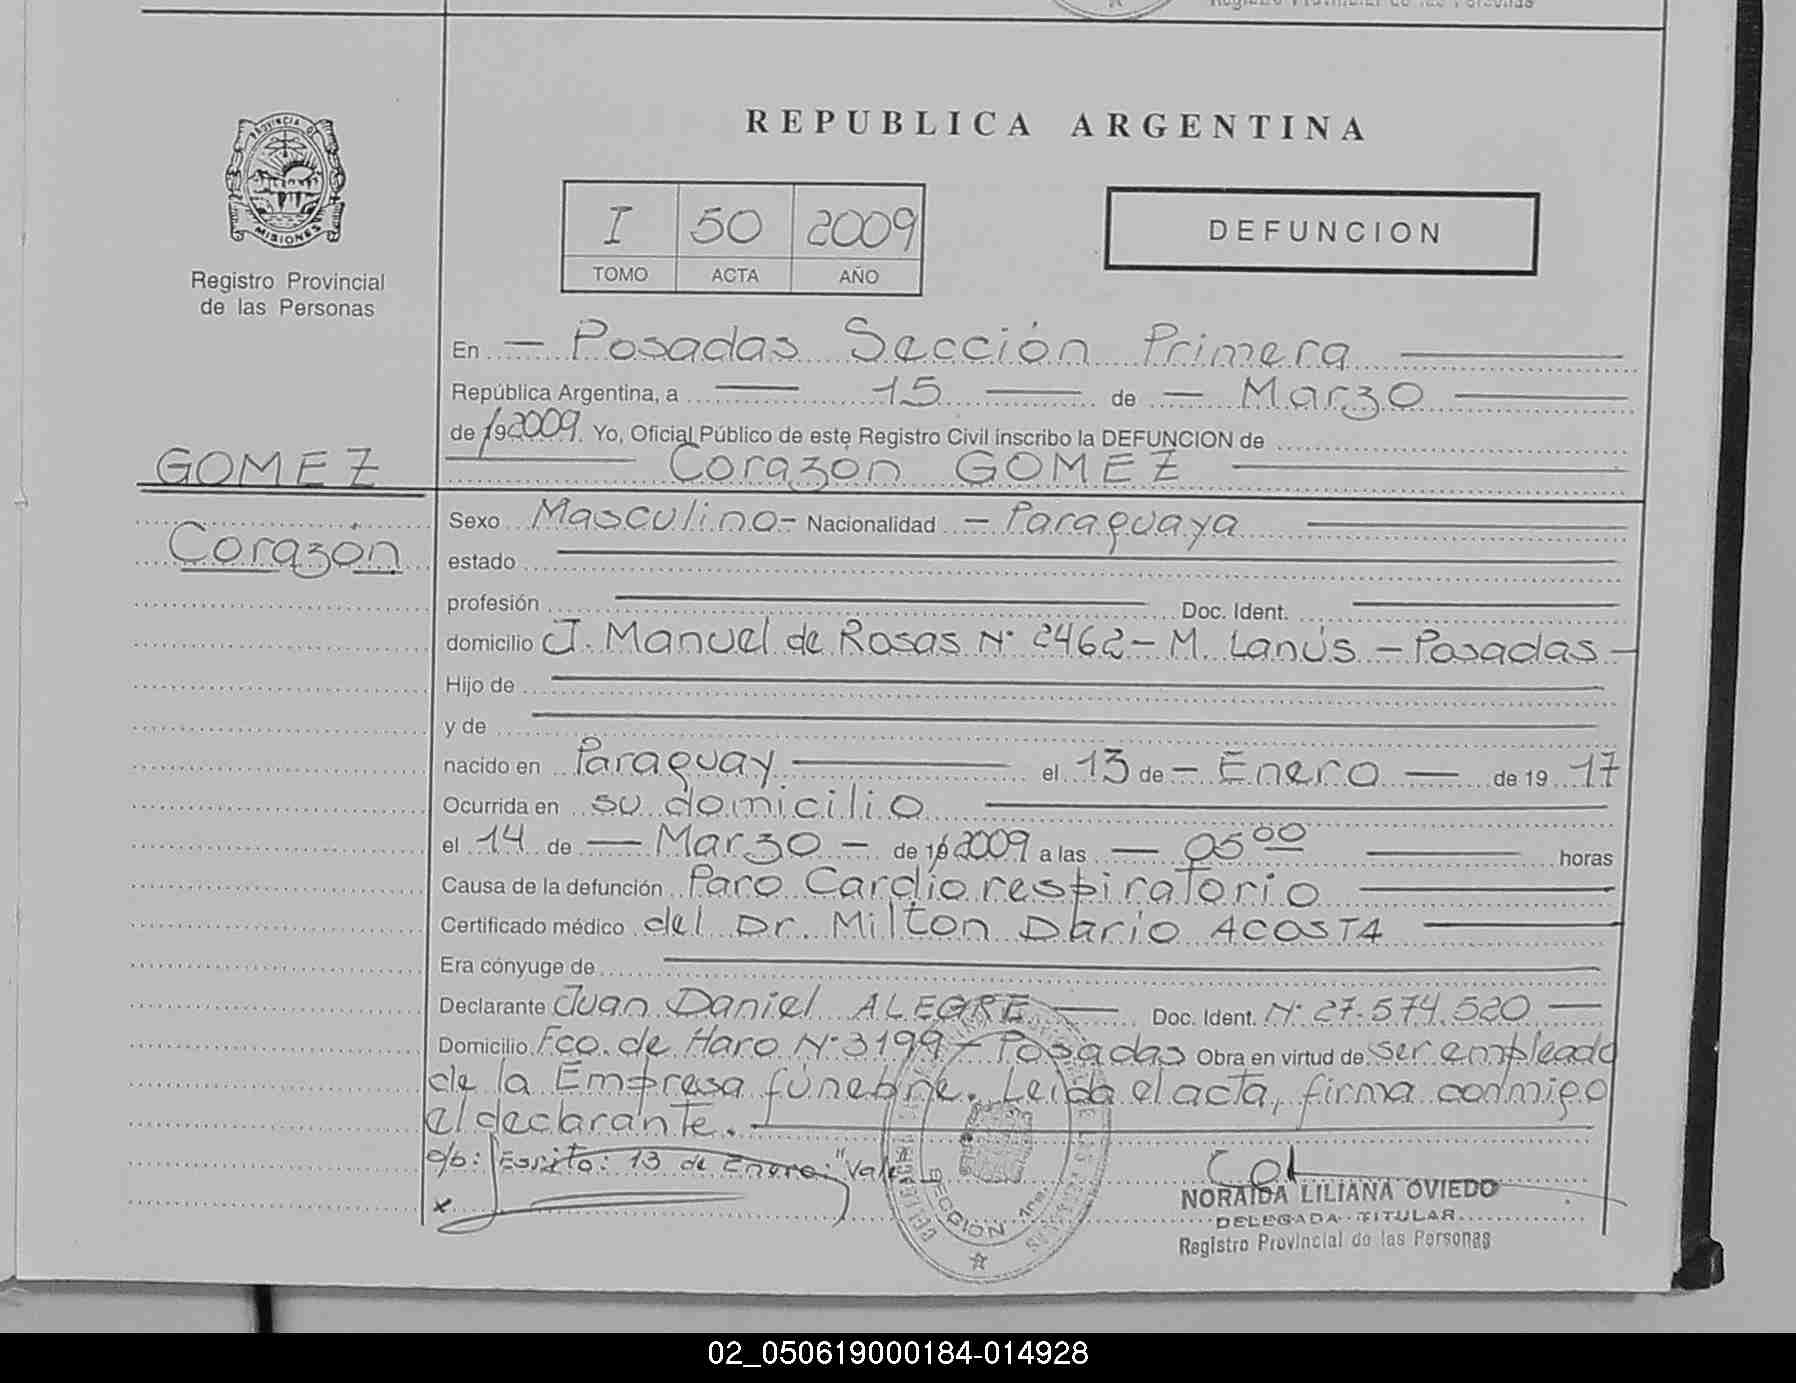 Registro Provincial de las Personas
PROVINCIA DE
MISIONES
Registro Provincial
de las Personas
REPUBLICA ARGENTINA
I 50 2009
TOMO ACTA AÑO
DEFUNCION
En - Posadas Sección Primera
República Argentina, a 15 de - Marzo
de 19 2009. Yo, Oficial Público de este Registro Civil inscribo la DEFUNCION de
GOMEZ
Corazón GOMEZ
Corazón
Sexo Masculino - Nacionalidad - Paraguaya
estado
profesión Doc. Ident.
domicilio J. Manuel de Rosas Nº 2462 - M. Lanús - Posadas -
Hijo de
y de
nacido en Paraguay el 13 de - Enero - de 19 17
Ocurrida en su domicilio
el 14 de - Marzo - de 19 2009 a las - 05 00 horas
Causa de la defunción Paro Cardiorespiratorio
Certificado médico del Dr. Milton Dario ACOSTA
Era cónyuge de
Declarante Juan Daniel ALEGRE Doc. Ident. Nº 27.574.520
Domicilio Fco. de Haro Nº 3199 - Posadas Obra en virtud de ser empleado
de la Empresa fúnebre. Leida el acta, firma conmigo
el declarante.
o/b: Esrito: 13 de Enero: "Vale
SECCION 1ra.
NORAIDA LILIANA OVIEDO
DELEGADA TITULAR
Registro Provincial de las Personas
02_050619000184-014928